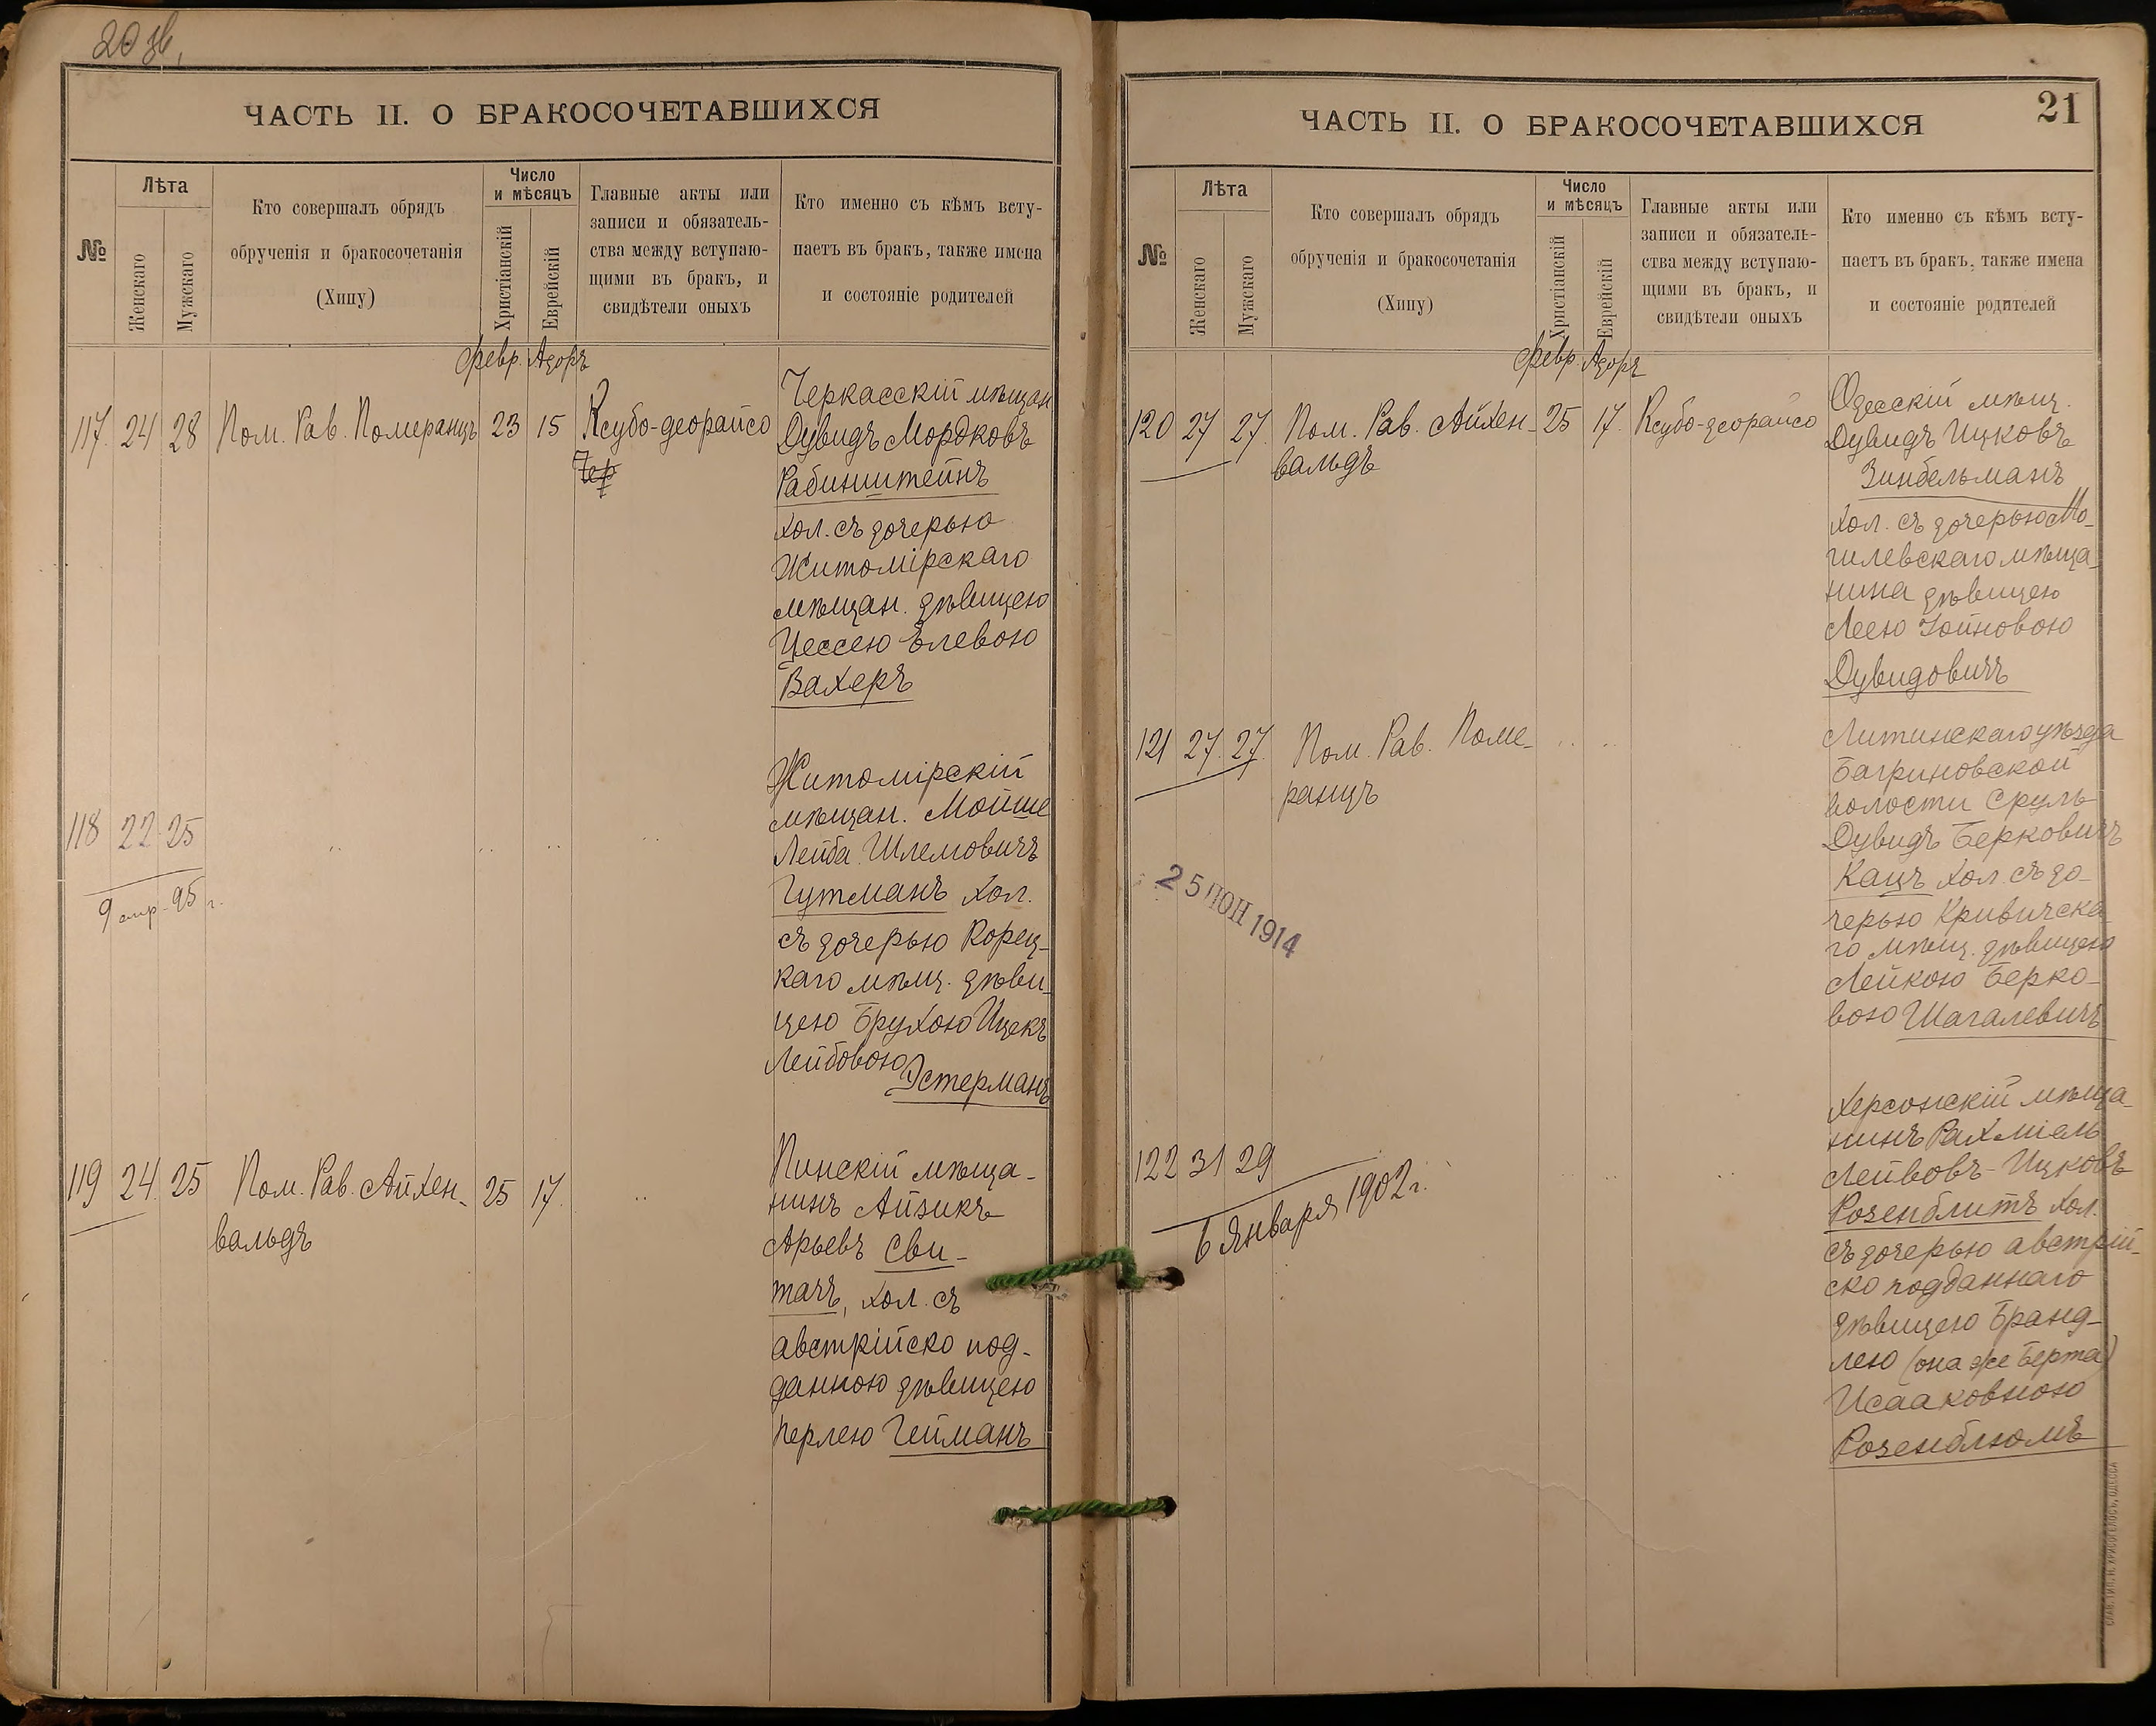 20 об.
ЧАСТЬ II. О БРАКОСОЧЕТАВШИХСЯ
№
Лѣта
Женскаго
Мужскаго
Кто совершалъ обрядъ
обрученія и бракосочетанія
(Хипу)
Число
и мѣсяцъ
Христіанскій
Еврейскій
Главные акты или
записи и обязатель-
ства между вступаю-
щими въ бракъ, и
свидѣтели оныхъ
Кто именно съ кѣмъ всту-
паетъ въ бракъ, также имена
и состояніе родителей
февр. Адоръ
117. 24 28 Пом. Рав. Померанцъ 23 15 Ксубо-деорайсо
Чер
Черкасскій мѣщан
Дувидъ Мордковъ
Рабинштейнъ
хол. съ дочерью
Житомірскаго
мѣщан. дѣвицею
Цессею Елевою
Вахеръ
118 22 25 .. .. .. ..
9 апр. 95 г.
Житомірскій
мѣщан. Мойше
Лейба Шлемовичъ
Гутманъ хол.
съ дочерью Корец-
каго мѣщ. дѣви-
цею Брухою Ицекъ
Лейбовою
Эстерманъ
119 24 25 Пом. Рав. Айхен-
вальдъ
25 17. ..
Пинскій мѣща-
нинъ Айзикъ
Арьевъ Сви-
тачъ, хол. съ
австрійско под-
данною дѣвицею
Перлею Гейманъ
21
ЧАСТЬ II. О БРАКОСОЧЕТАВШИХСЯ
№
Лѣта
Женскаго
Мужскаго
Кто совершалъ обрядъ
обрученія и бракосочетанія
(Хипу)
Число
и мѣсяцъ
Христіанскій
Еврейскій
Главные акты или
записи и обязатель-
ства между вступаю-
щими въ бракъ, и
свидѣтели оныхъ
Кто именно съ кѣмъ всту-
паетъ въ бракъ, также имена
и состояніе родителей
февр. Адоръ
120 27 27. Пом. Рав. Айхен-
вальдъ
25 17. Ксубо-деорайсо
Одесскій мѣщ.
Дувидъ Ицковъ
Зинбельманъ
хол. съ дочерью Мо-
гилевскаго мѣща-
нина дѣвицею
Леею Іойновою
Дувидовичъ
121 27. 27. Пом. Рав. Поме-
ранцъ
.. .. ..
25 ІЮН 1914
Литинскаго уѣзда
Багриновской
волости Сруль
Дувидъ Берковичъ
Кацъ хол. съ до-
черью Кривичска-
го мѣщ. дѣвицею
Лейкою Берко-
вою Шагалевичъ
122 31 29 .. ..
6 Января 1902 г.
Херсонскій мѣща-
нинъ Рахміель
Лейвовъ-Ицковъ
Розенблитъ хол.
съ дочерью австрій-
ско подданнаго
дѣвицею Бранд-
лею (она же Берта)
Исааковною
Розенблюмъ